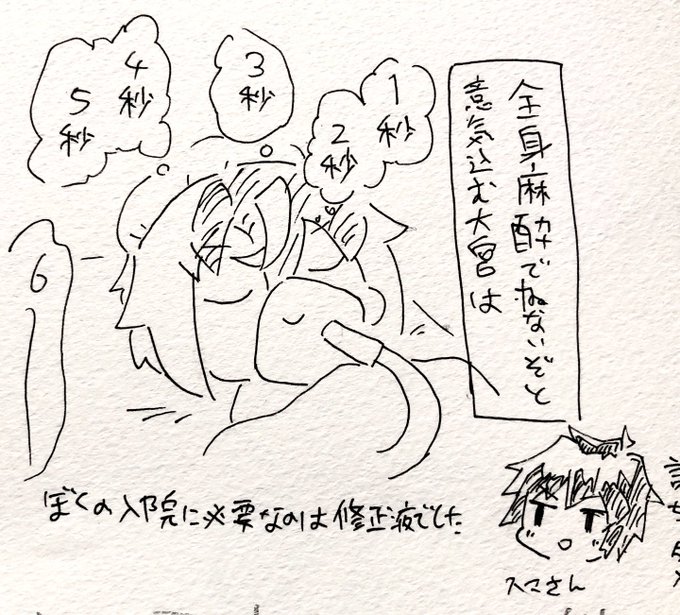 全身麻酔でねないぞと
意気込む大宮は
1秒
2秒
3秒
4秒
5秒
6
ぼくの入院に必要なのは修正液でした
スマさん